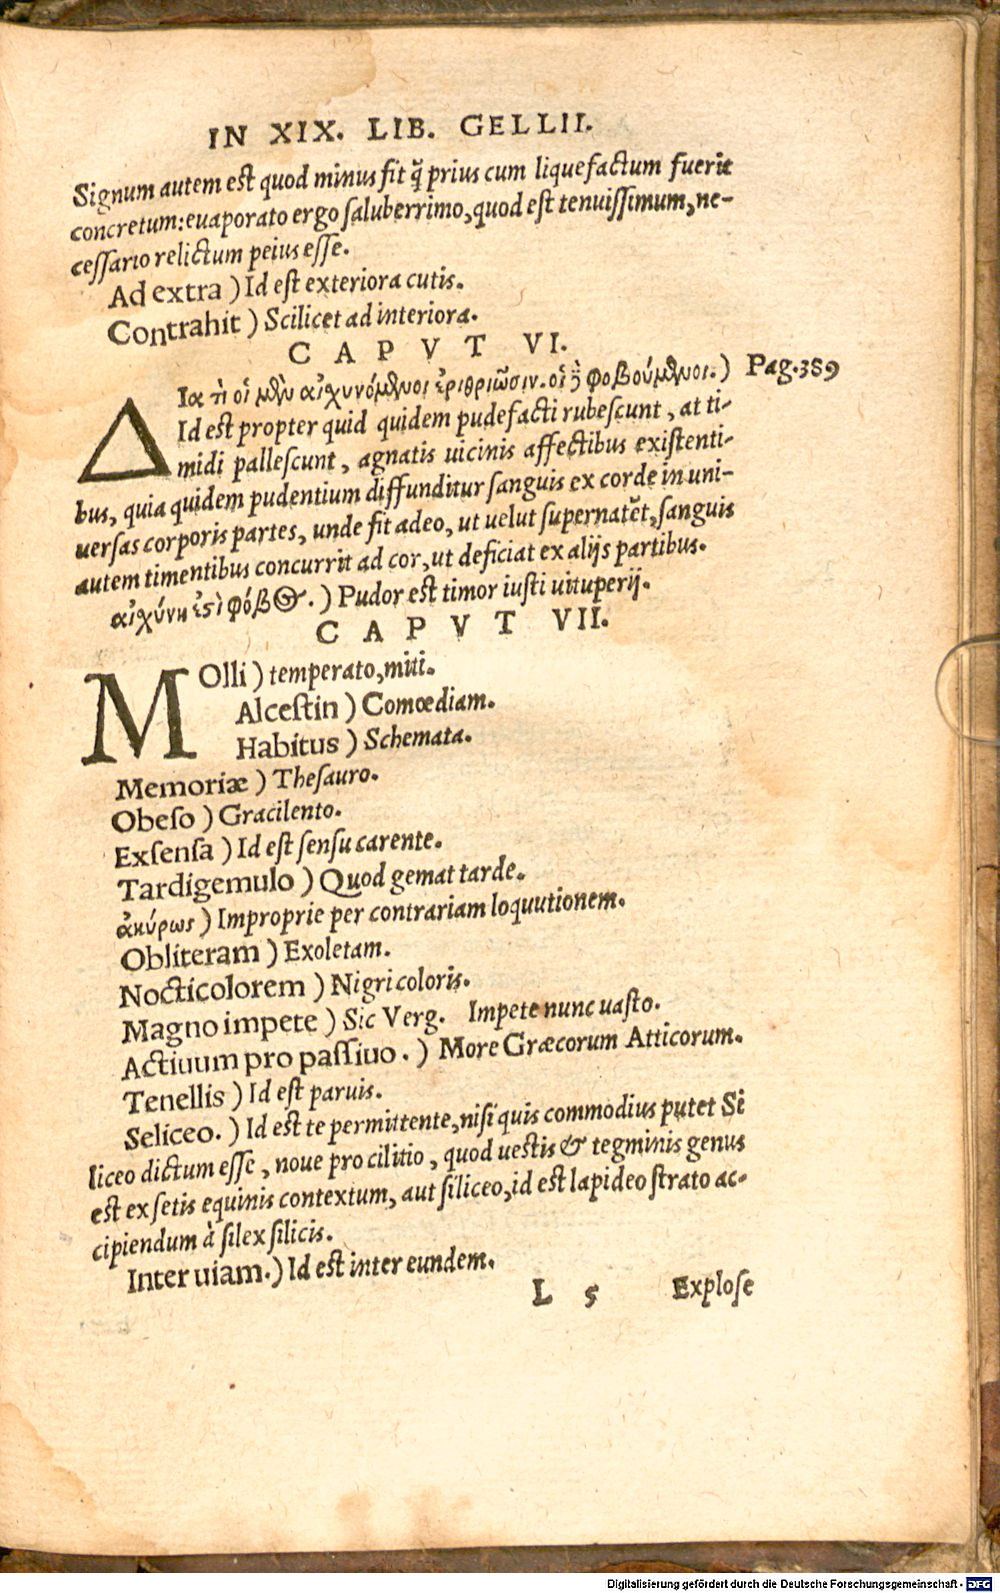 IN XIX. LIB. GELLII.
Signum autem est quod minus fit q̃ prius cum liquefactum fuerit
concretum: euaporato ergo saluberrimo, quod est tenuissimum, ne-
cessario relictum peius esse.
Ad extra ) Id est exteriora cutis.
Contrahit ) Scilicet ad interiora.
CAPVT VI.
ΔΙα τὶ οἱ μὲν αἰχυνόμενοι ἐριθριῶσιν. οἱ ϳ φοβούμενοι. ) Pag. 389
Id est propter quid quidem pudefacti rubescunt, at ti-
midi pallescunt, agnatis uicinis affectibus existenti-
bus, quia quidem pudentium diffunditur sanguis ex corde in uni-
uersas corporis partes, unde fit adeo, ut uelut supernatet, sanguis
autem timentibus concurrit ad cor, ut deficiat ex alijs partibus.
αἰχύνη ἐστὶ φόβος. ) Pudor est timor iusti uituperij.
CAPVT VII.
MOlli ) temperato, miti.
Alcestin ) Comœdiam.
Habitus ) Schemata.
Memoriæ ) Thesauro.
Obeso ) Gracilento.
Exsensa ) Id est sensu carente.
Tardigemulo ) Quod gemat tarde.
ἀκύρως ) Improprie per contrariam loquutionem.
Obliteram ) Exoletam.
Nocticolorem ) Nigri coloris.
Magno impete ) Sic Verg. Impete nunc uasto.
Actiuum pro passiuo. ) More Græcorum Atticorum.
Tenellis ) Id est paruis.
Seliceo. ) Id est te permittente, nisi quis commodius putet Si
liceo dictum esse, noue pro cilitio, quod uestis & tegminis genus
est ex setis equinis contextum, aut siliceo, id est lapideo strato ac-
cipiendum à silex silicis.
Inter uiam. ) Id est inter eundem.
L 5 Explose
Digitalisierung gefördert durch die Deutsche Forschungsgemeinschaft - DFG